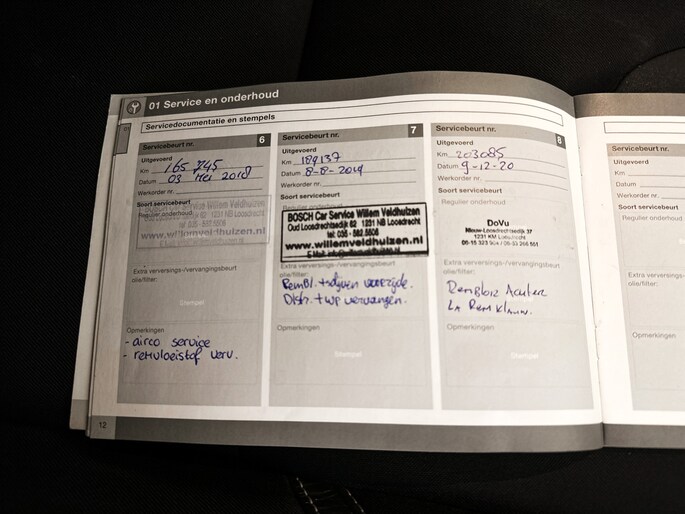 01 Service en onderhoud
Servicedocumentatie en stempels
Servicebeurt nr. 6
Uitgevoerd
Km 165 745
Datum 03 Mei 2018
Werkorder nr.
Soort servicebeurt
Regulier onderhoud
BOSCH Car Service Willem Veldhuizen
Oud Loosdrechtsedijk 62 1231 NB Loosdrecht
tel: 035 - 582.5606
www.willemveldhuizen.nl
Extra verversings-/vervangingsbeurt
olie/filter:
Stempel
Opmerkingen
- airco service
- remvloeistof verv.
Servicebeurt nr. 7
Uitgevoerd
Km 189137
Datum 8-8-2019
Werkorder nr.
Soort servicebeurt
Regulier onderhoud
BOSCH Car Service Willem Veldhuizen
Oud Loosdrechtsedijk 62 1231 NB Loosdrecht
tel: 035 - 582.5606
www.willemveldhuizen.nl
Extra verversings-/vervangingsbeurt
olie/filter:
Rembl. + schijven voorzijde.
Distr. + WP vervangen.
Opmerkingen
Stempel
Servicebeurt nr. 8
Uitgevoerd
Km 203085
Datum 9-12-20
Werkorder nr.
Soort servicebeurt
Regulier onderhoud
DoVu
Nieuw-Loosdrechtsedijk 37
1231 KM Loosdrecht
Extra verversings-/vervangingsbeurt
olie/filter:
Remblok Achter
LA Remklauw.
Opmerkingen
Stempel
Servicebeurt nr.
Uitgevoerd
Km
Datum
Werkorder nr.
Soort servicebeurt
Regulier onderhoud
Extra
olie/filter:
Opmerkingen
12